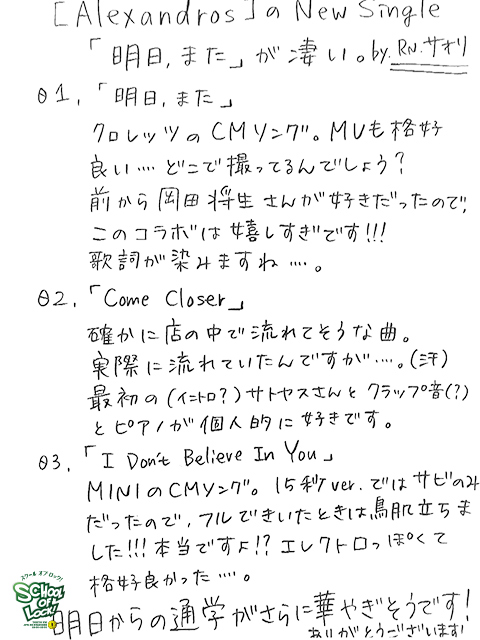 [Alexandros]の New Single
「明日、また」が凄い。by. RN.サオリ
01、「明日、また」
クロレッツのCMソング。MVも格好
良い…. どこで撮ってるんでしょう?
前から岡田将生さんが好きだったので、
このコラボは嬉しすぎです!!!
歌詞が染みますね….。
02、「Come Closer」
確かに店の中で流れてそうな曲。
実際に流れていたんですが….。(汗)
最初の(イントロ?)サトヤスさんとクラップ音(?)
とピアノが個人的に好きです。
03、「I Don't Believe In You」
MINIのCMソング。15秒ver.ではサビのみ
だったので、フルできいたときは鳥肌立ちま
した!!!本当ですよ!?エレクトロっぽくて
格好良かった….。
スクール オブ ロック!
SCHOOL OF LOCK!
明日からの通学がさらに華やぎそうです!
ありがとうございます!